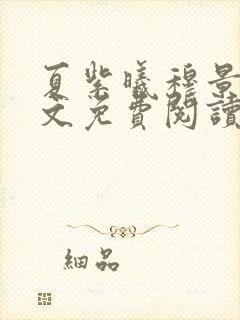 夏紫曦穆景
文免費閱讀
細品